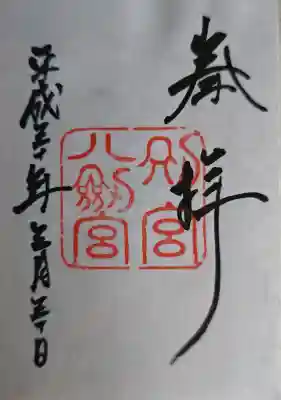 奉拝
別宮
八剱宮
平成三十年 月三十日